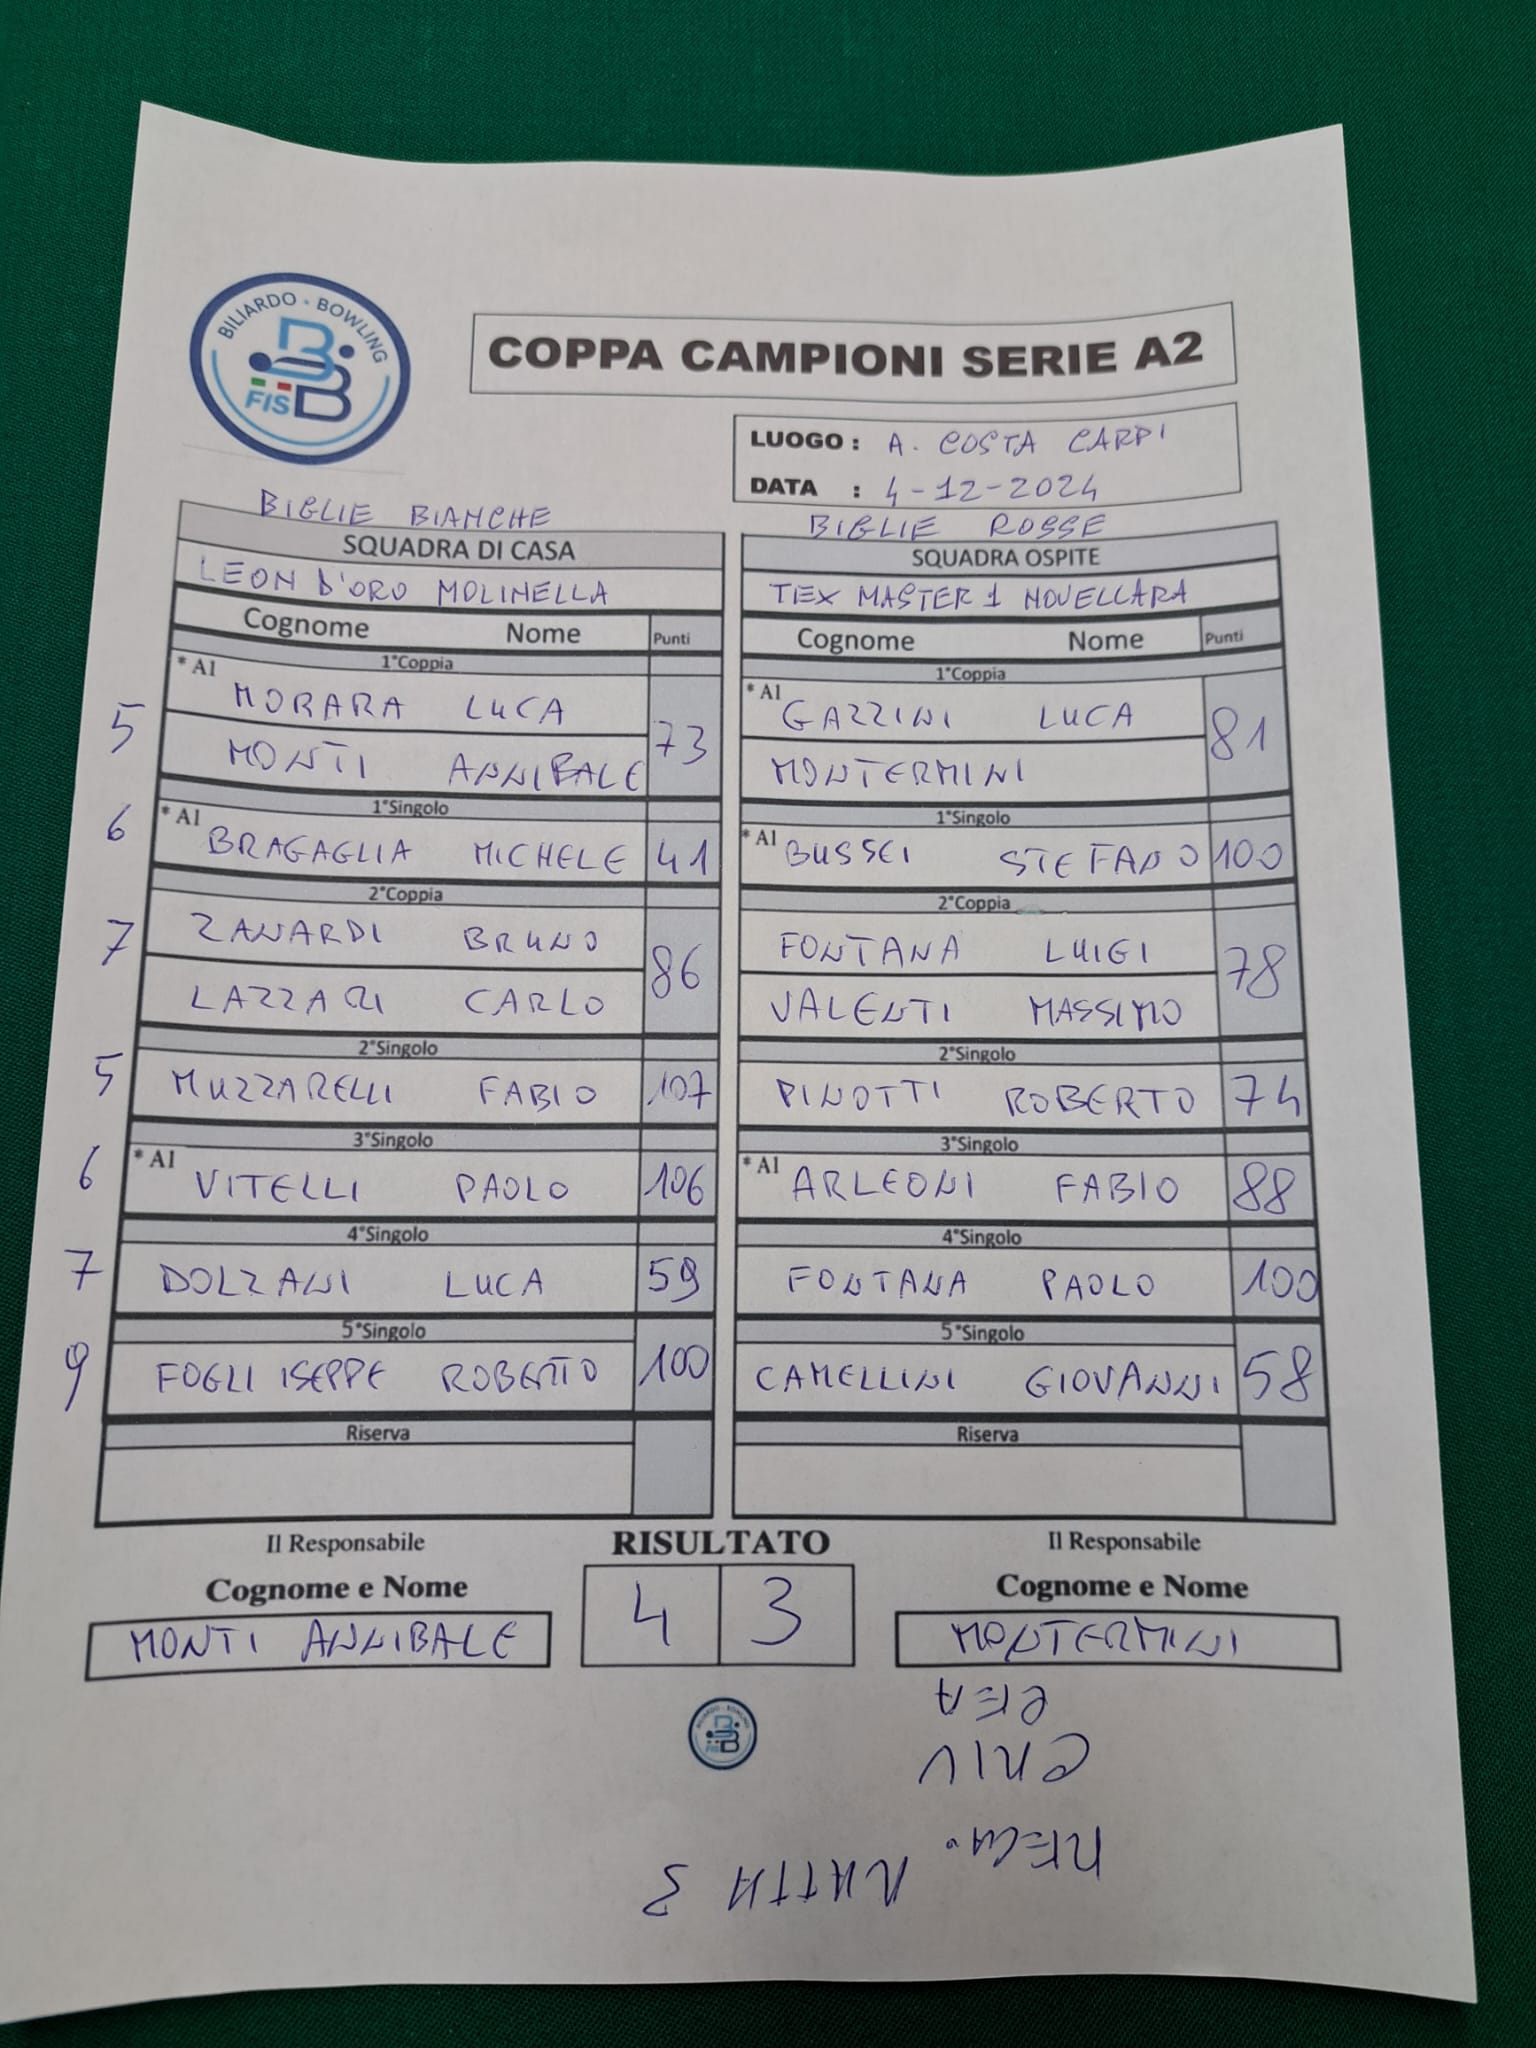 BILIARDO - BOWLING
FISBB
COPPA CAMPIONI SERIE A2
LUOGO : A. COSTA CARPI
DATA : 4-12-2024
BIGLIE BIANCHE
SQUADRA DI CASA
LEON D'ORO MOLINELLA
Cognome Nome Punti
1°Coppia
5 * A1 MORARA LUCA 73
MONTI ANNIBALE
1°Singolo
6 * A1 BRAGAGLIA MICHELE 41
2°Coppia
7 ZANARDI BRUNO 86
LAZZARI CARLO
2°Singolo
5 MUZZARELLI FABIO 107
3°Singolo
6 * A1 VITELLI PAOLO 106
4°Singolo
7 DOLZANI LUCA 59
5°Singolo
9 FOGLI ISEPPE ROBERTO 100
Riserva
BIGLIE ROSSE
SQUADRA OSPITE
TEX MASTER 1 NOVELLARA
Cognome Nome Punti
1°Coppia
* A1 GAZZINI LUCA 81
MONTERMINI
1°Singolo
* A1 BUSSEI STEFANO 100
2°Coppia
FONTANA LUIGI 78
VALENTI MASSIMO
2°Singolo
PINOTTI ROBERTO 74
3°Singolo
* A1 ARLEONI FABIO 88
4°Singolo
FONTANA PAOLO 100
5°Singolo
CAMELLINI GIOVANNI 58
Riserva
Il Responsabile
Cognome e Nome
MONTI ANNIBALE
RISULTATO
4 3
Il Responsabile
Cognome e Nome
MONTERMINI